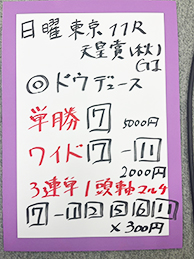 日曜東京11R
天皇賞(秋)
GI
◎ドウデュース
単勝 7 5000円
ワイド 7-11
2000円
3連単1頭軸マルチ
7-1 2 5 6 11
×300円